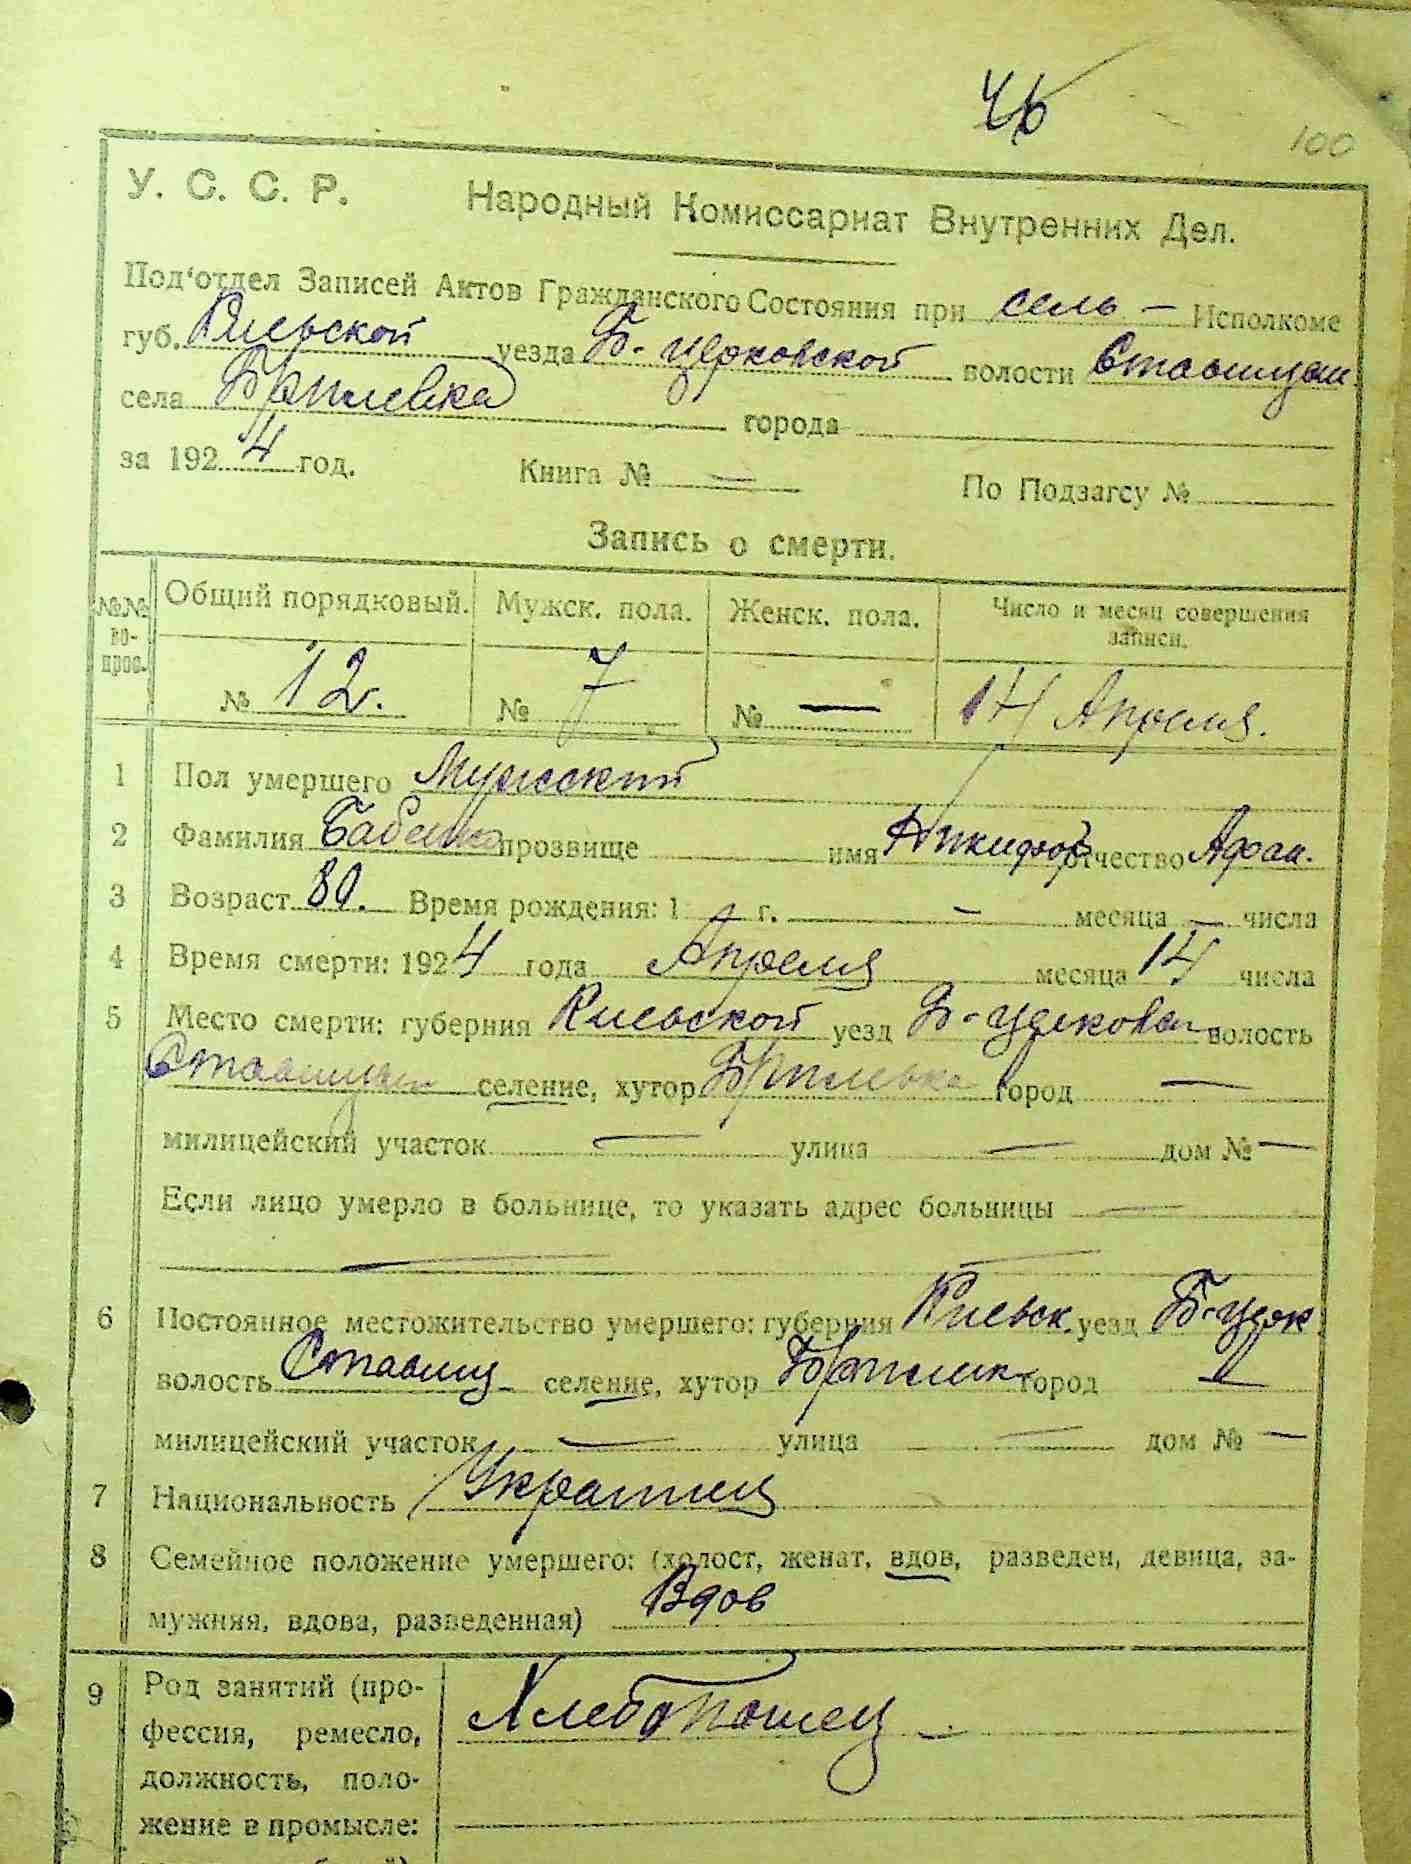 46
100
У. С. С. Р. Народный Комиссариат Внутренних Дел.
Под'отдел Записей Актов Гражданского Состояния при сель — Исполкоме
губ. Киевской уезда Б-церковской волости Ставищан.
села Брилевка города
за 1924 год. Книга № — По Подзагсу №
Запись о смерти.
№№ вопрос. Общий порядковый. Мужск. пола. Женск. пола. Число и месяц совершения записи.
№ 12. № 7 № — 14 Апреля.
1 Пол умершего Мужский
2 Фамилия Бабенко прозвище имя Никифор отчество Афан.
3 Возраст 80. Время рождения: 1 г. — месяца — числа
4 Время смерти: 1924 года Апреля месяца 14 числа
5 Место смерти: губерния Киевской уезд Б-церковск волость
Ставищан селение, хутор Брилевка город —
милицейский участок — улица — дом № —
Если лицо умерло в больнице, то указать адрес больницы —
6 Постоянное местожительство умершего: губерния Киевск. уезд Б-церк
волость Ставищ селение, хутор город
милицейский участок — улица — дом № —
7 Национальность Украинец
8 Семейное положение умершего: (холост, женат, вдов, разведен, девица, за-
мужняя, вдова, разведенная) Вдов
9 Род занятий (про- Хлебопашец —
фессия, ремесло,
должность, поло-
жение в промысле: